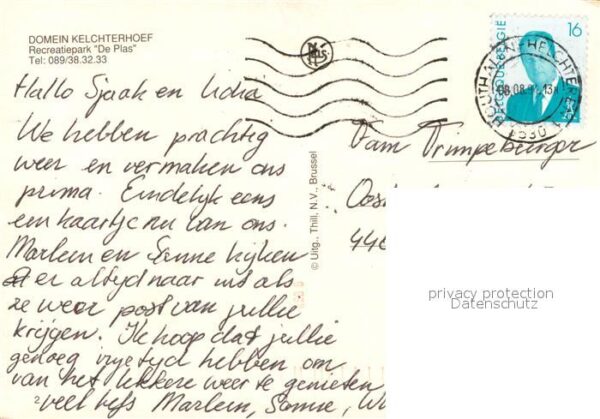 DOMEIN KELCHTERHOEF
Recreatiepark "De Plas"
Tel: 089/38.32.33
Hallo Sjaak en Lidia
We hebben prachtig
weer en vermaken ons
prima. Eindelijk eens
een kaartje nu van ons.
Marleen en Sanne kijken
er altijd naar uit als
ze weer post van jullie
krijgen. Ik hoop dat jullie
genoeg vrije tijd hebben om
van het lekkere weer te genieten
veel liefs Marleen, Sanne, W
© Uitg., Thill, N.V., Brussel
16
BELGIQUE-BELGIE
HOUTHALEN-HELCHTEREN
08.08.9
3530
Fam Trimpeburger
Oost
446
privacy protection
Datenschutz